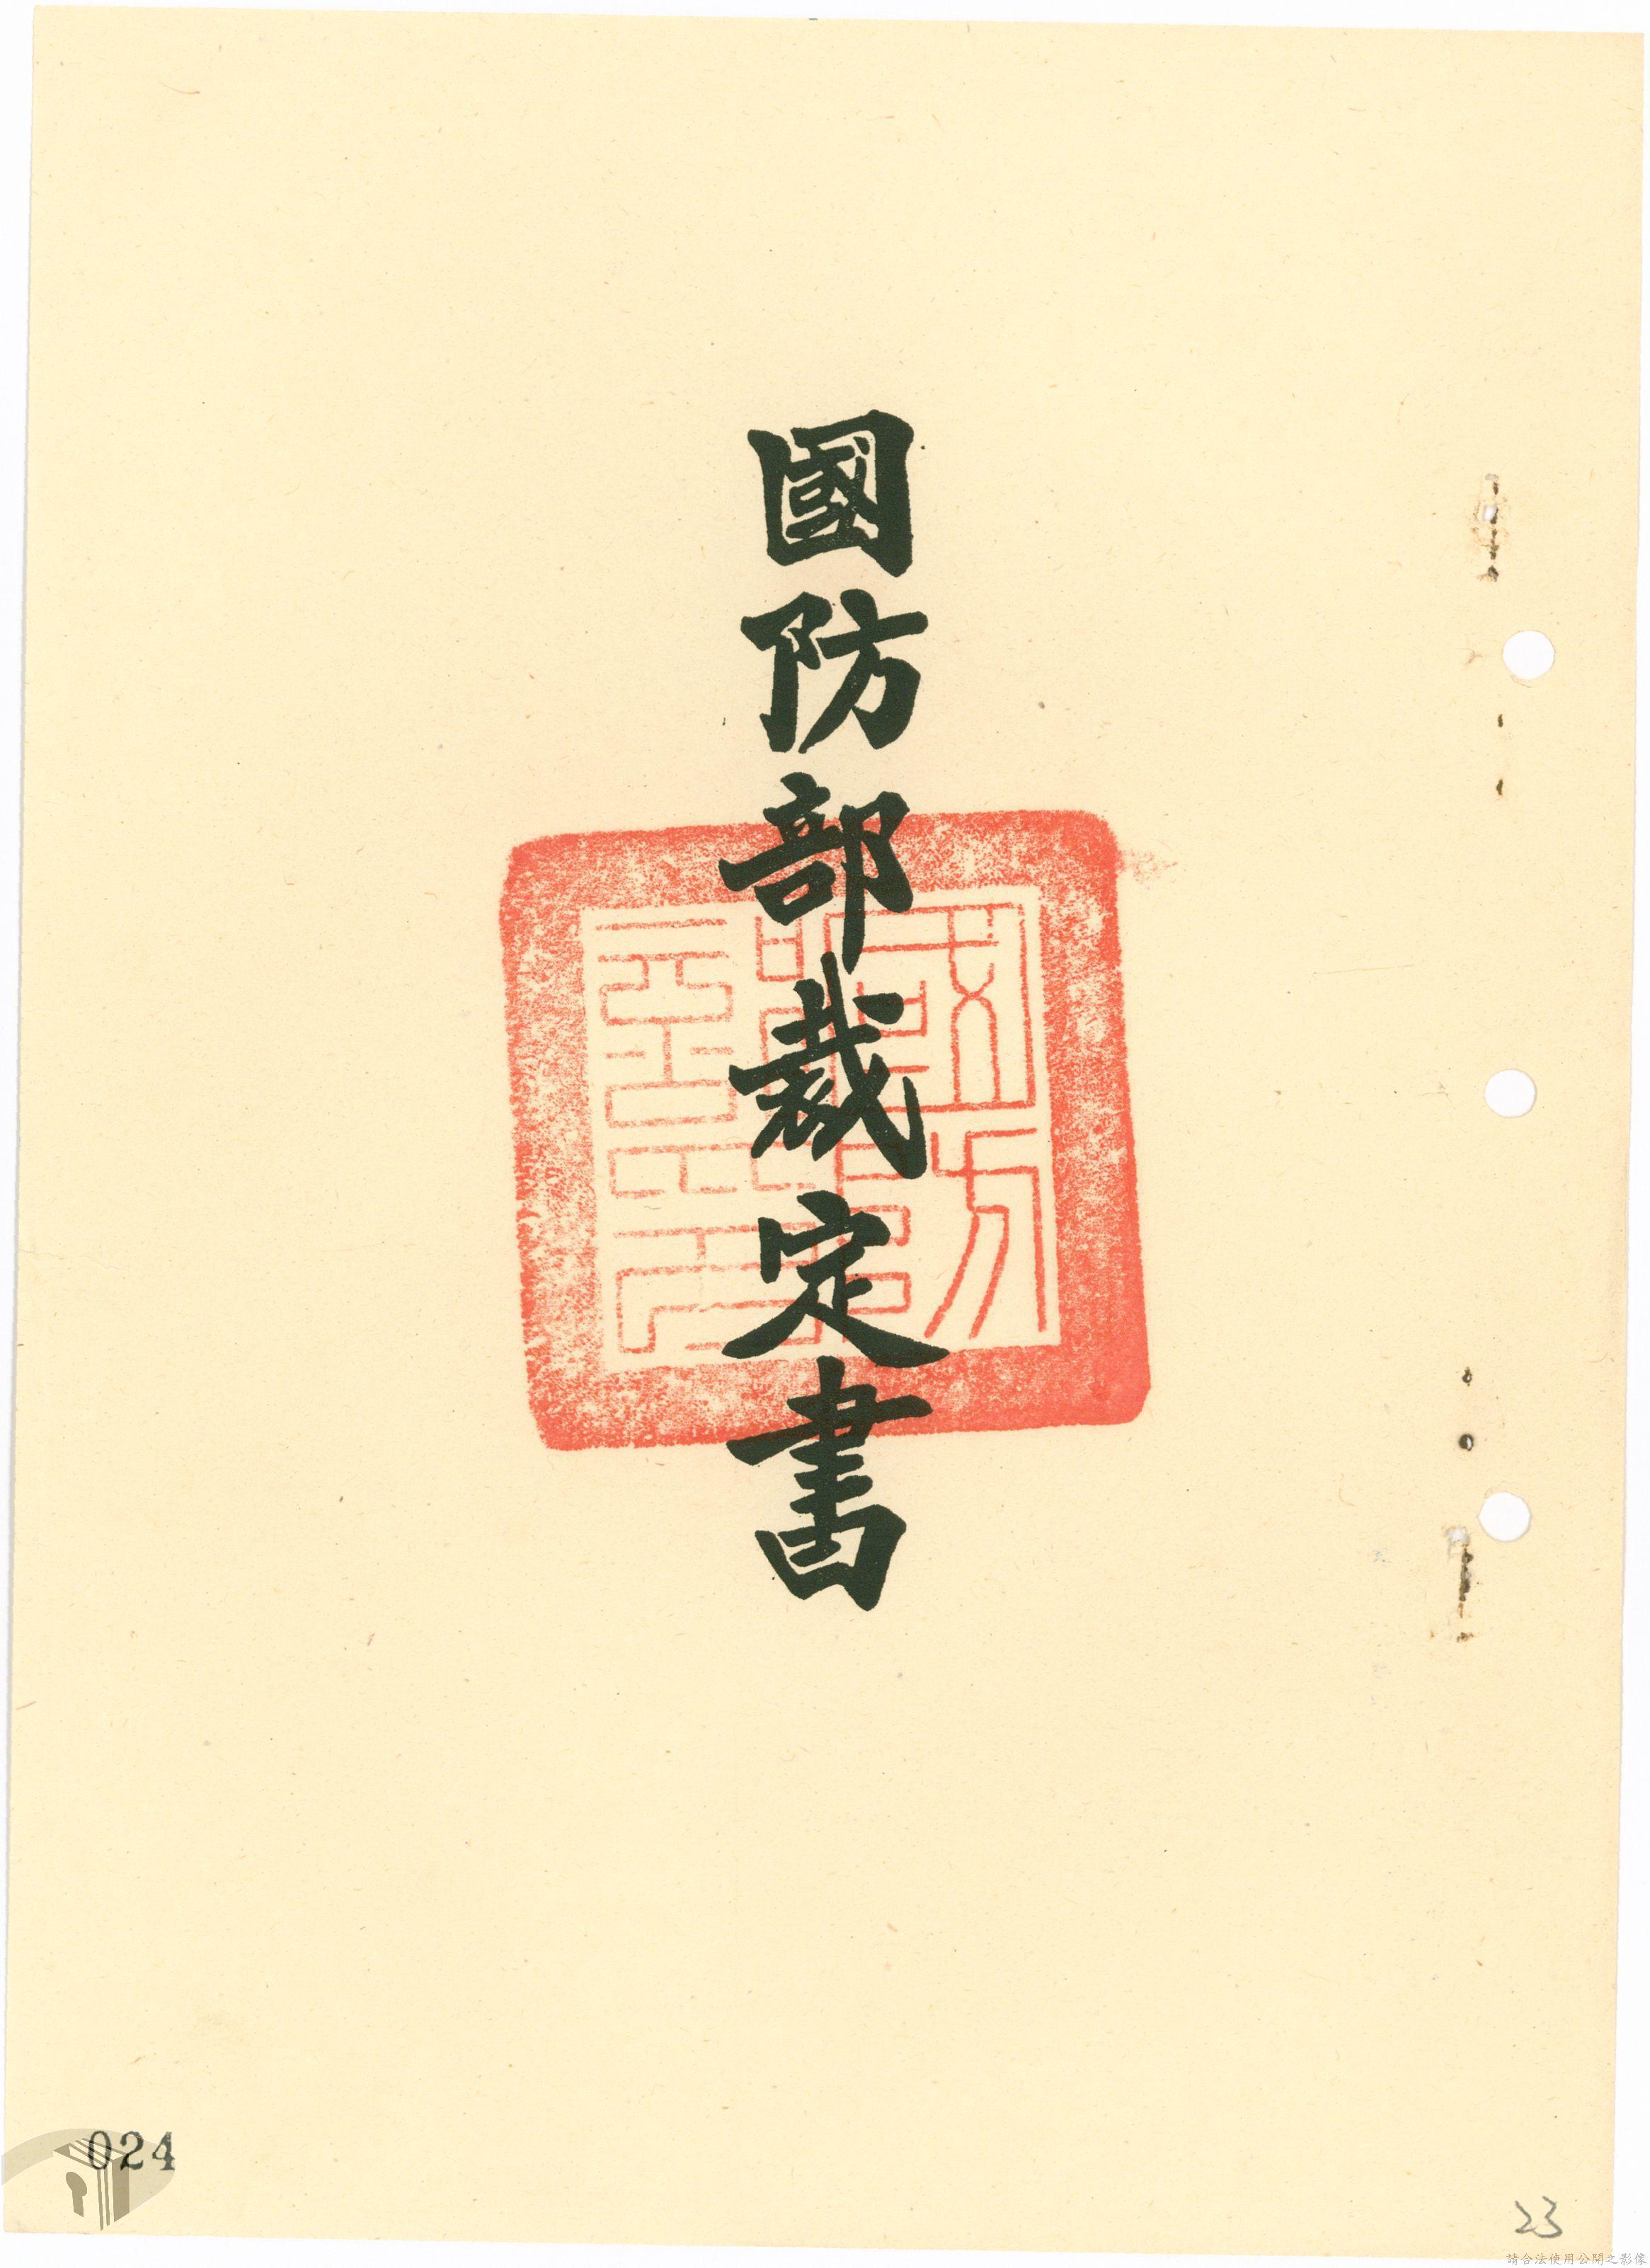 國防部裁定書
024
23
請合法使用公開之影像